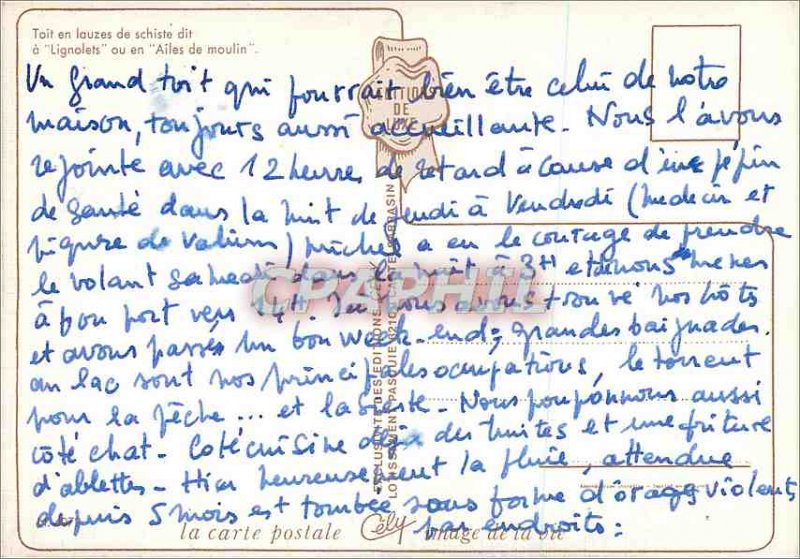 Toit en lauzes de schiste dit
à "Lignolets" ou en "Ailes de moulin".
Un grand toit qui pourrait bien être celui de notre
maison, toujours aussi accueillante. Nous l'avons
rejointe avec 12 heures de retard à cause d'un pépin
de santé dans la nuit de Jeudi à Vendredi (médecin et
piqure de Valium) a eu le courage de prendre
le volant samedi dans la nuit à 3H et nous mener
à bon port vers 14H. Nous avons trouvé nos hôts
et avons passés un bon week-end; grandes baignades.
au lac sont nos principales occupations, le torrent
pour la pêche... et la sieste. Nous pouponnons aussi
côté chat. Coté cuisine des truites et une friture
d'ablettes. Hier heureusement la pluie, attendue
depuis 5 mois est tombée sous forme d'orages violents
par endroits:
EDITIONS
DE
LUXE
CPARPHIL
EXCLUSIVITE DES EDITIONS
LOTISSEMENT PASQUIE
la carte postale Cély image de la vie